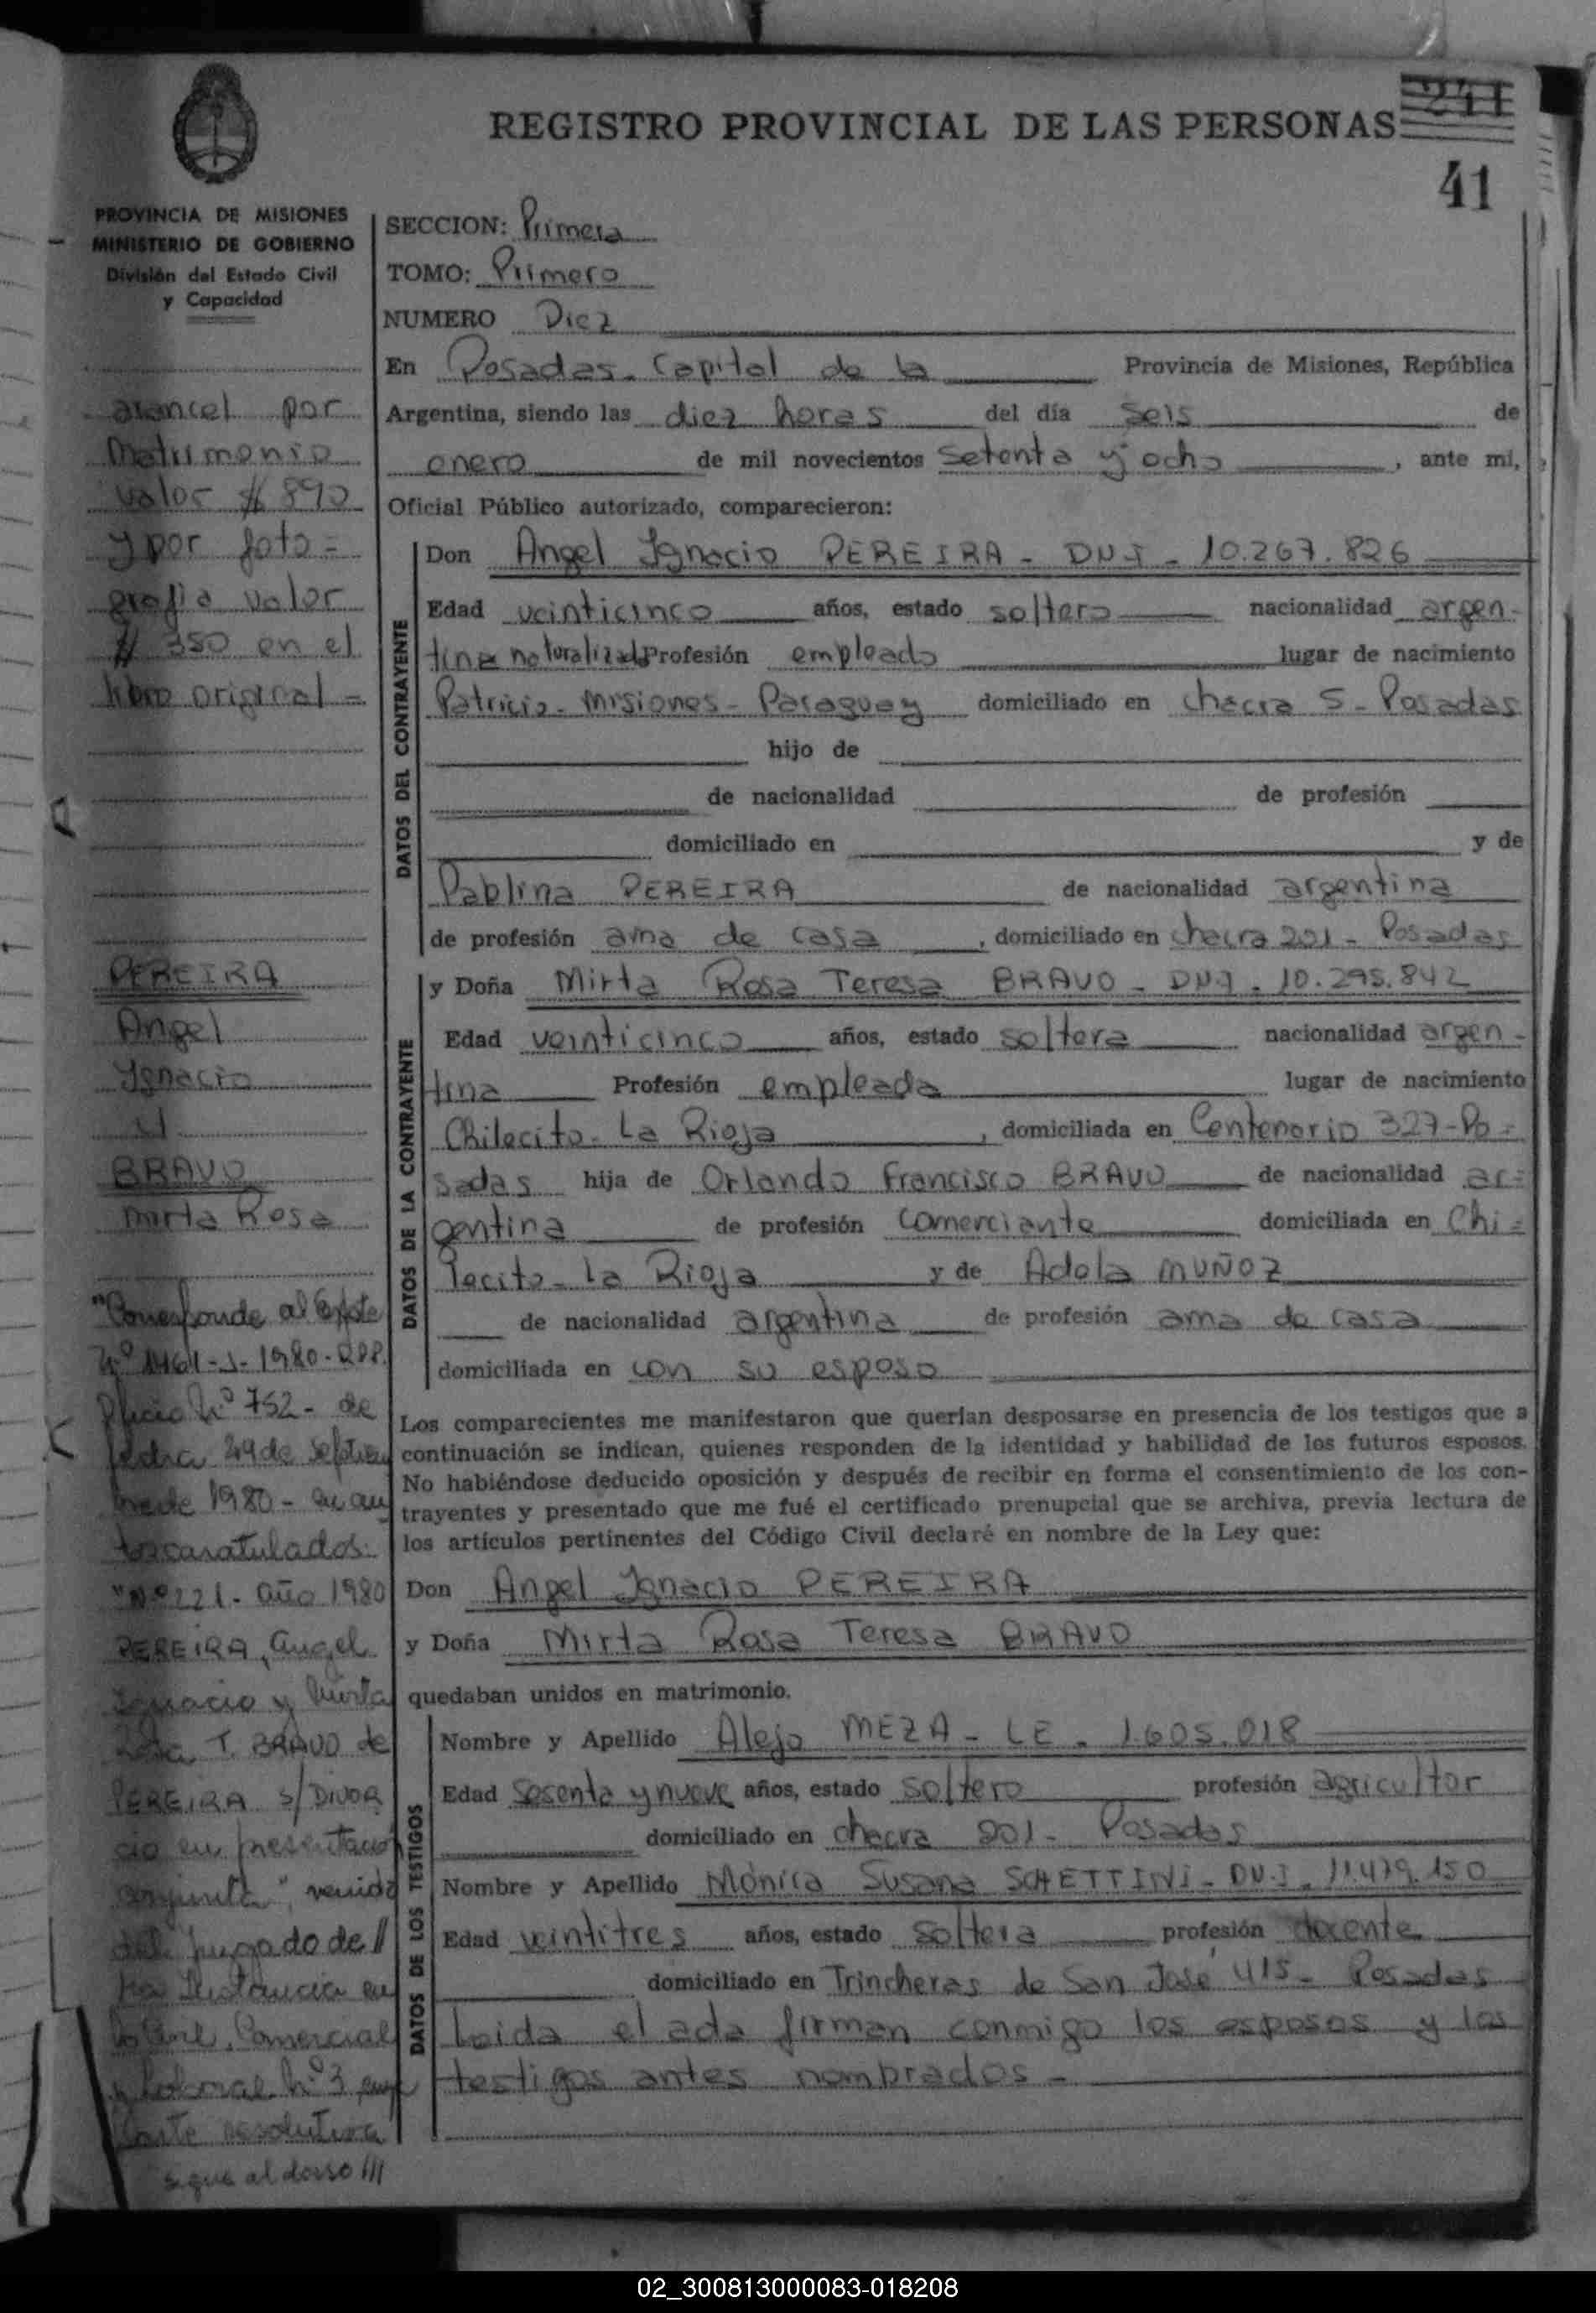 REGISTRO PROVINCIAL DE LAS PERSONAS
241
41
PROVINCIA DE MISIONES
MINISTERIO DE GOBIERNO
División del Estado Civil
y Capacidad
arancel por
Matrimonio
valor $ 890
y por foto=
grafia valor
$ 350 en el
libro original =
PEREIRA
Angel
Ignacio
y
BRAVO
Mirta Rosa
"Corresponde al Expte
Nº 1461-J-1980-RPP.
Oficio Nº 752- de
fecha 29 de septiem
bre de 1980- en au
tos caratulados:
"Nº 221- año 1980
PEREIRA, Angel
Ignacio y Mirta
Rosa T. BRAVO de
PEREIRA s/ DIVOR
cio en presentacio
conjunta", venido
del juzgado de 1/
ra Instancia en
lo Civil, Comercial
y Laboral Nº 3 cuya
parte resolutiva
sigue al dorso ///
SECCION: Primera
TOMO: Primero
NUMERO Diez
En Posadas. Capital de la Provincia de Misiones, República
Argentina, siendo las diez horas del día seis de
enero de mil novecientos setenta y ocho, ante mi,
Oficial Público autorizado, comparecieron:
DATOS DEL CONTRAYENTE
Don Angel Ignacio PEREIRA - DNI - 10.267.826
Edad veinticinco años, estado soltero nacionalidad argen-
tina naturalizado Profesión empleado lugar de nacimiento
Patricio - Misiones - Paraguay domiciliado en chacra 5 - Posadas
hijo de
de nacionalidad de profesión
domiciliado en y de
Pablina PEREIRA de nacionalidad argentina
de profesión ama de casa, domiciliado en chacra 201 - Posadas
DATOS DE LA CONTRAYENTE
y Doña Mirta Rosa Teresa BRAVO - DNI - 10.295.842
Edad veinticinco años, estado soltera nacionalidad argen-
tina Profesión empleada lugar de nacimiento
Chilecito - La Rioja, domiciliada en Centenario 327-Po=
sadas hija de Orlando Francisco BRAVO de nacionalidad ar=
gentina de profesión comerciante domiciliada en Chi=
lecito - La Rioja y de Adela MUÑOZ
de nacionalidad argentina de profesión ama de casa
domiciliada en con su esposo
Los comparecientes me manifestaron que querían desposarse en presencia de los testigos que a
continuación se indican, quienes responden de la identidad y habilidad de los futuros esposos.
No habiéndose deducido oposición y después de recibir en forma el consentimiento de los con-
trayentes y presentado que me fué el certificado prenupcial que se archiva, previa lectura de
los artículos pertinentes del Código Civil declaré en nombre de la Ley que:
Don Angel Ignacio PEREIRA
y Doña Mirta Rosa Teresa BRAVO
quedaban unidos en matrimonio.
DATOS DE LOS TESTIGOS
Nombre y Apellido Alejo MEZA - LE - 1.605.018
Edad sesenta y nueve años, estado soltero profesión agricultor
domiciliado en chacra 201 - Posadas
Nombre y Apellido Mónica Susana SCHETTINI - DNI - 11.479.150
Edad veintitres años, estado soltera profesión docente
domiciliado en Trincheras de San José 415 - Posadas
Leida el acta firman conmigo los esposos y los
testigos antes nombrados -
02_300813000083-018208